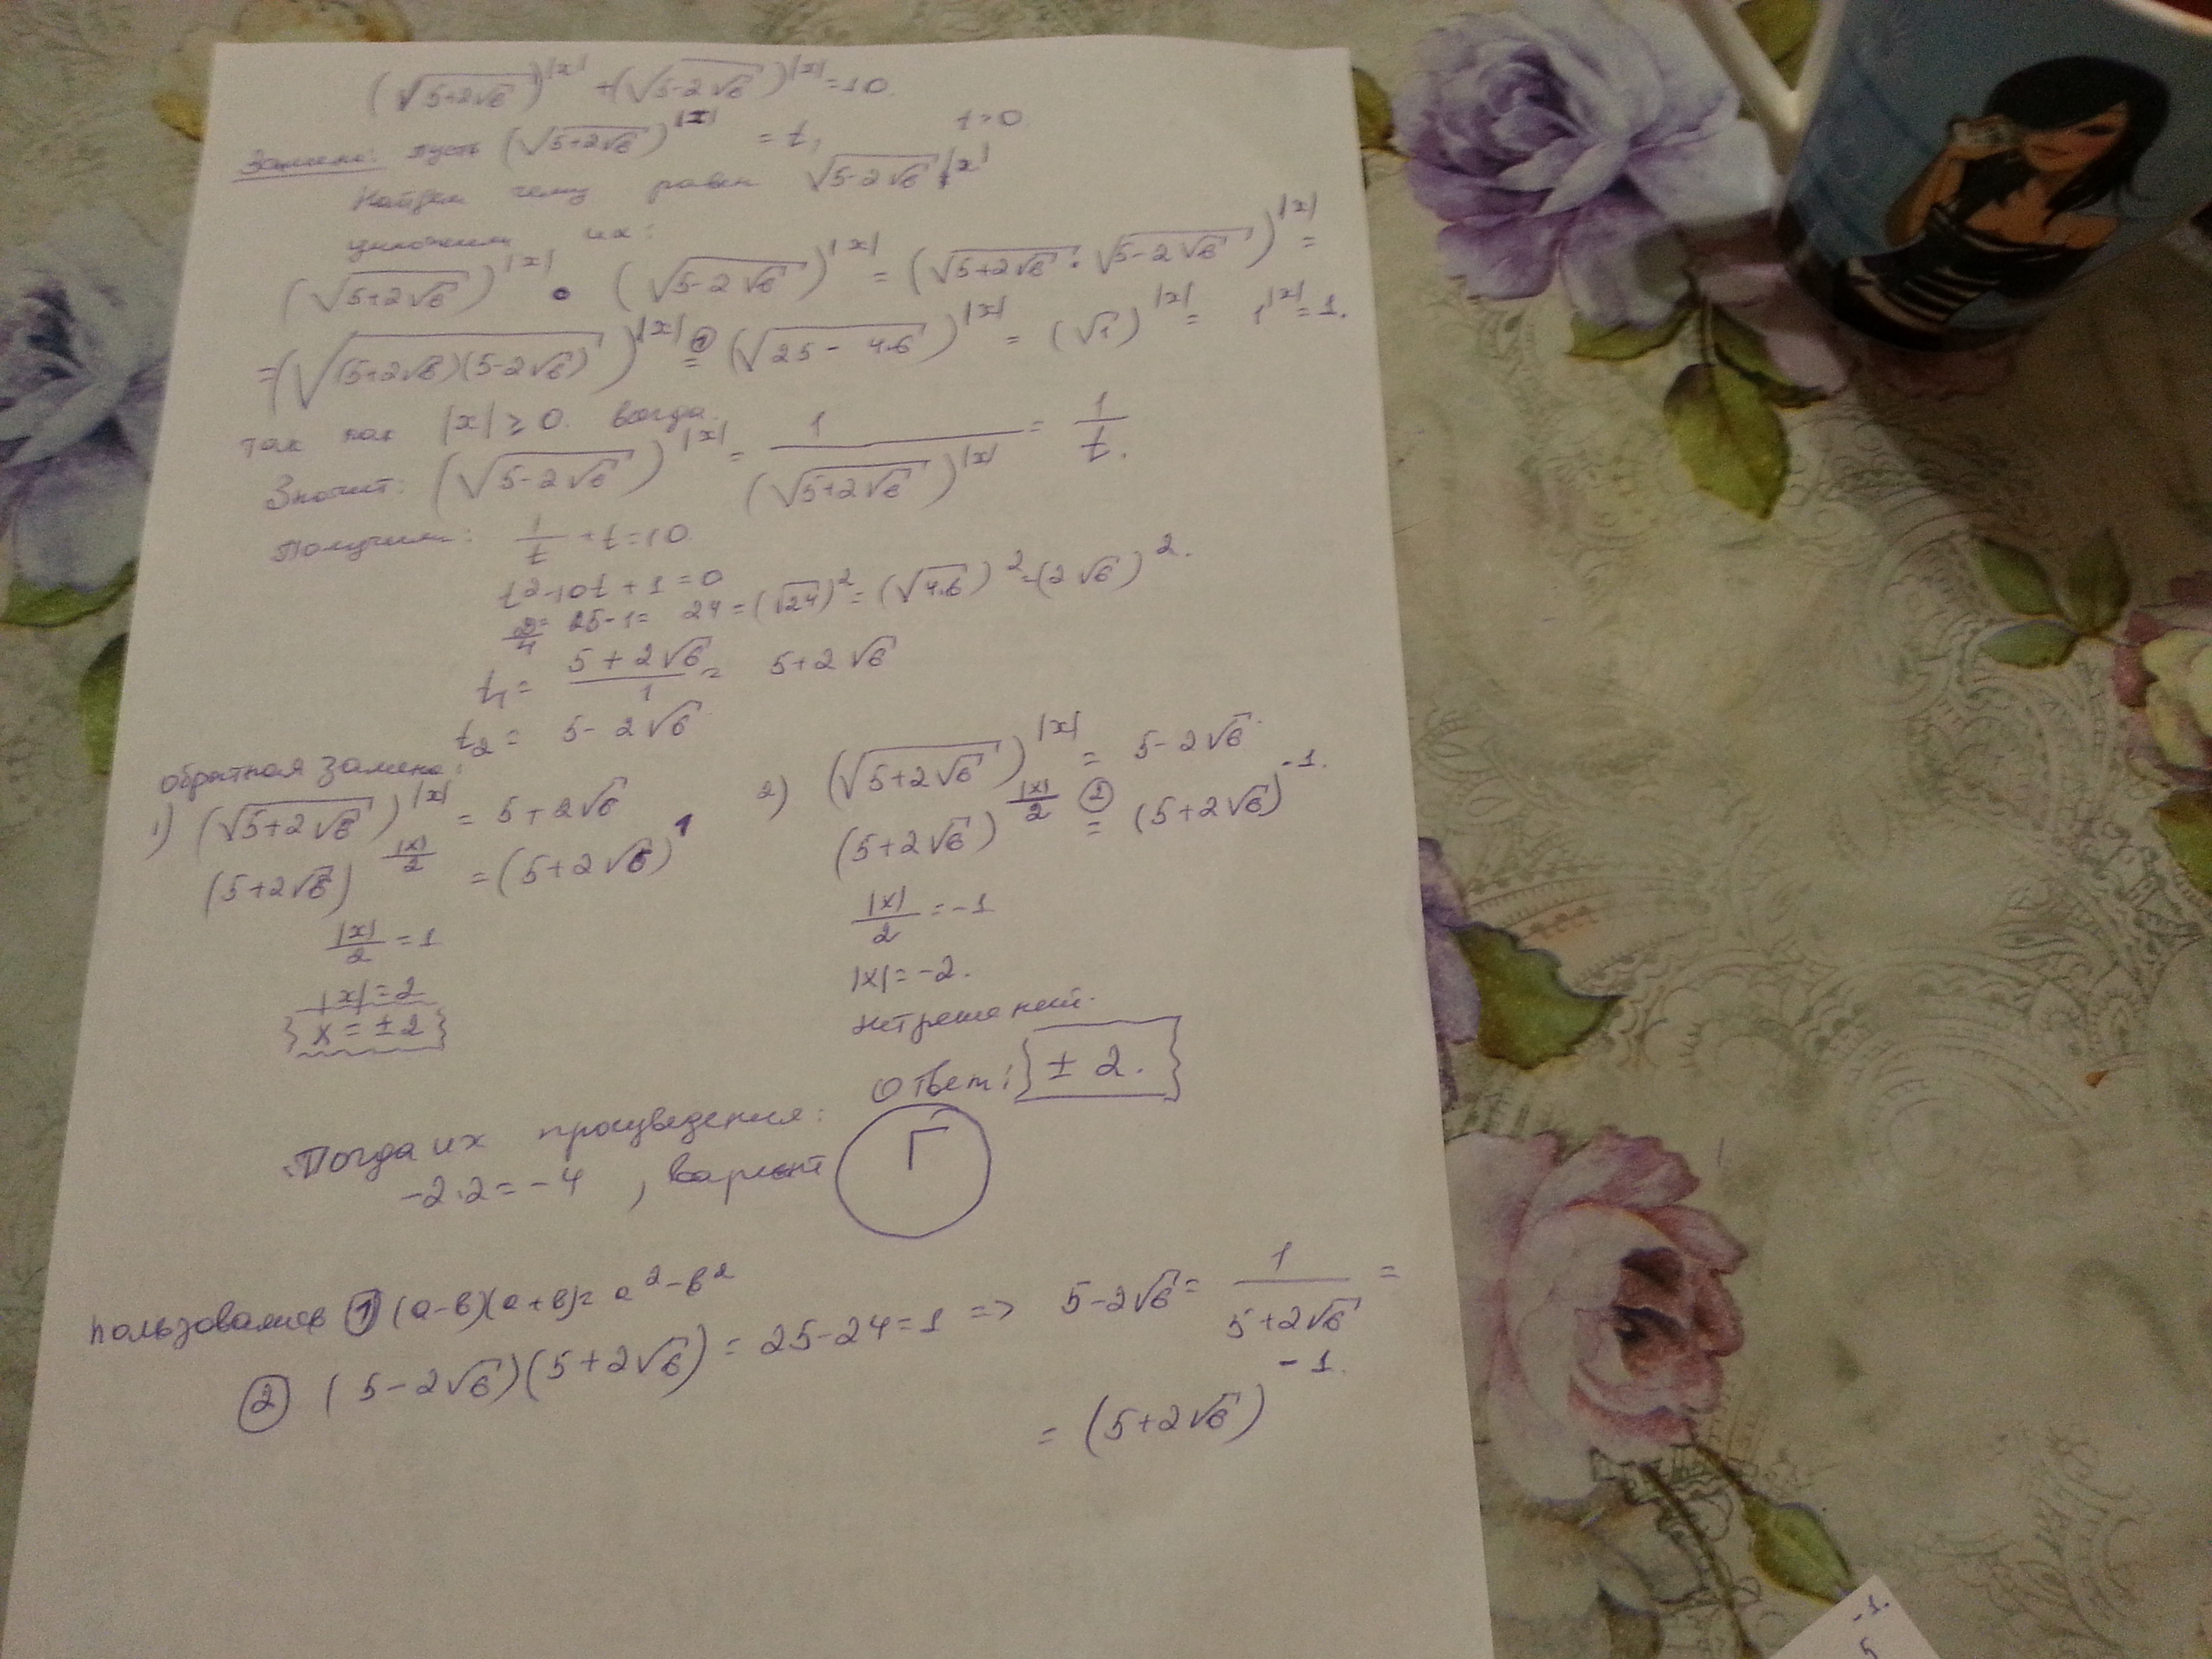 (√(5+2√6))^|x| + (√(5-2√6))^|x| = 10.
Замена: пусть (√(5+2√6))^|x| = t, t>0
Найдем чему равен √(5-2√6)^|x|
умножим их:
(√(5+2√6))^|x| • (√(5-2√6))^|x| = (√(5+2√6) · √(5-2√6))^|x| =
=(√((5+2√6)(5-2√6)))^|x| ①= (√(25-4·6))^|x| = (√1)^|x| = 1^|x| = 1.
так как |x| ≥ 0. всегда.
Значит: (√(5-2√6))^|x| = 1/(√(5+2√6))^|x| = 1/t.
Получим: 1/t + t = 10
t²-10t+1=0
D/4 = 25-1= 24 = (√24)² = (√(4·6))² = (2√6)².
t₁ = (5+2√6)/1 = 5+2√6
t₂ = 5-2√6
обратная замена:
1) (√(5+2√6))^|x| = 5+2√6
(5+2√6)^(|x|/2) = (5+2√6)^1
|x|/2 = 1
|x|=2
x = ±2
2) (√(5+2√6))^|x| = 5-2√6.
(5+2√6)^(|x|/2) ②= (5+2√6)^-1.
|x|/2 = -1
|x| = -2.
нет решений.
Ответ: ±2.
Тогда их произведения:
-2·2=-4, вариант Г
пользовались ① (a-b)(a+b)= a²-b²
② (5-2√6)(5+2√6) = 25-24=1 => 5-2√6 = 1/(5+2√6) =
= (5+2√6)^-1.
-1.
5